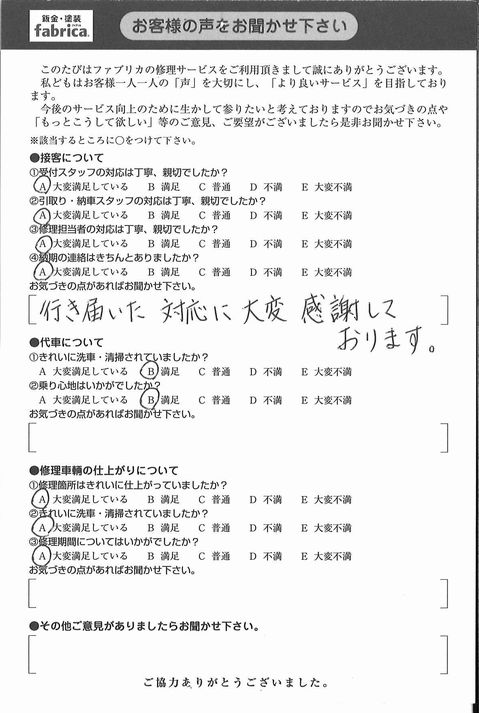 鈑金・塗装
fabrica.
お客様の声をお聞かせ下さい
このたびはファブリカの修理サービスをご利用頂きまして誠にありがとうございます。
私どもはお客様一人一人の「声」を大切にし、「より良いサービス」を目指しており
ます。
今後のサービス向上のために生かして参りたいと考えておりますのでお気づきの点や
「もっとこうして欲しい」等のご意見、ご要望がございましたら是非お聞かせ下さい。
※該当するところに○をつけて下さい。
●接客について
①受付スタッフの対応は丁寧、親切でしたか?
A 大変満足している B 満足 C 普通 D 不満 E 大変不満
②引取り・納車スタッフの対応は丁寧、親切でしたか?
A 大変満足している B 満足 C 普通 D 不満 E 大変不満
③修理担当者の対応は丁寧、親切でしたか?
A 大変満足している B 満足 C 普通 D 不満 E 大変不満
④納期の連絡はきちんとありましたか?
A 大変満足している B 満足 C 普通 D 不満 E 大変不満
お気づきの点があればお聞かせ下さい。
行き届いた 対応に 大変 感謝して
おります。
●代車について
①きれいに洗車・清掃されていましたか?
A 大変満足している B 満足 C 普通 D 不満 E 大変不満
②乗り心地はいかがでしたか?
A 大変満足している B 満足 C 普通 D 不満 E 大変不満
お気づきの点があればお聞かせ下さい。
●修理車輌の仕上がりについて
①修理箇所はきれいに仕上がっていましたか?
A 大変満足している B 満足 C 普通 D 不満 E 大変不満
②きれいに洗車・清掃されていましたか?
A 大変満足している B 満足 C 普通 D 不満 E 大変不満
③修理期間についてはいかがでしたか?
A 大変満足している B 満足 C 普通 D 不満 E 大変不満
お気づきの点があればお聞かせ下さい。
●その他ご意見がありましたらお聞かせ下さい。
ご協力ありがとうございました。